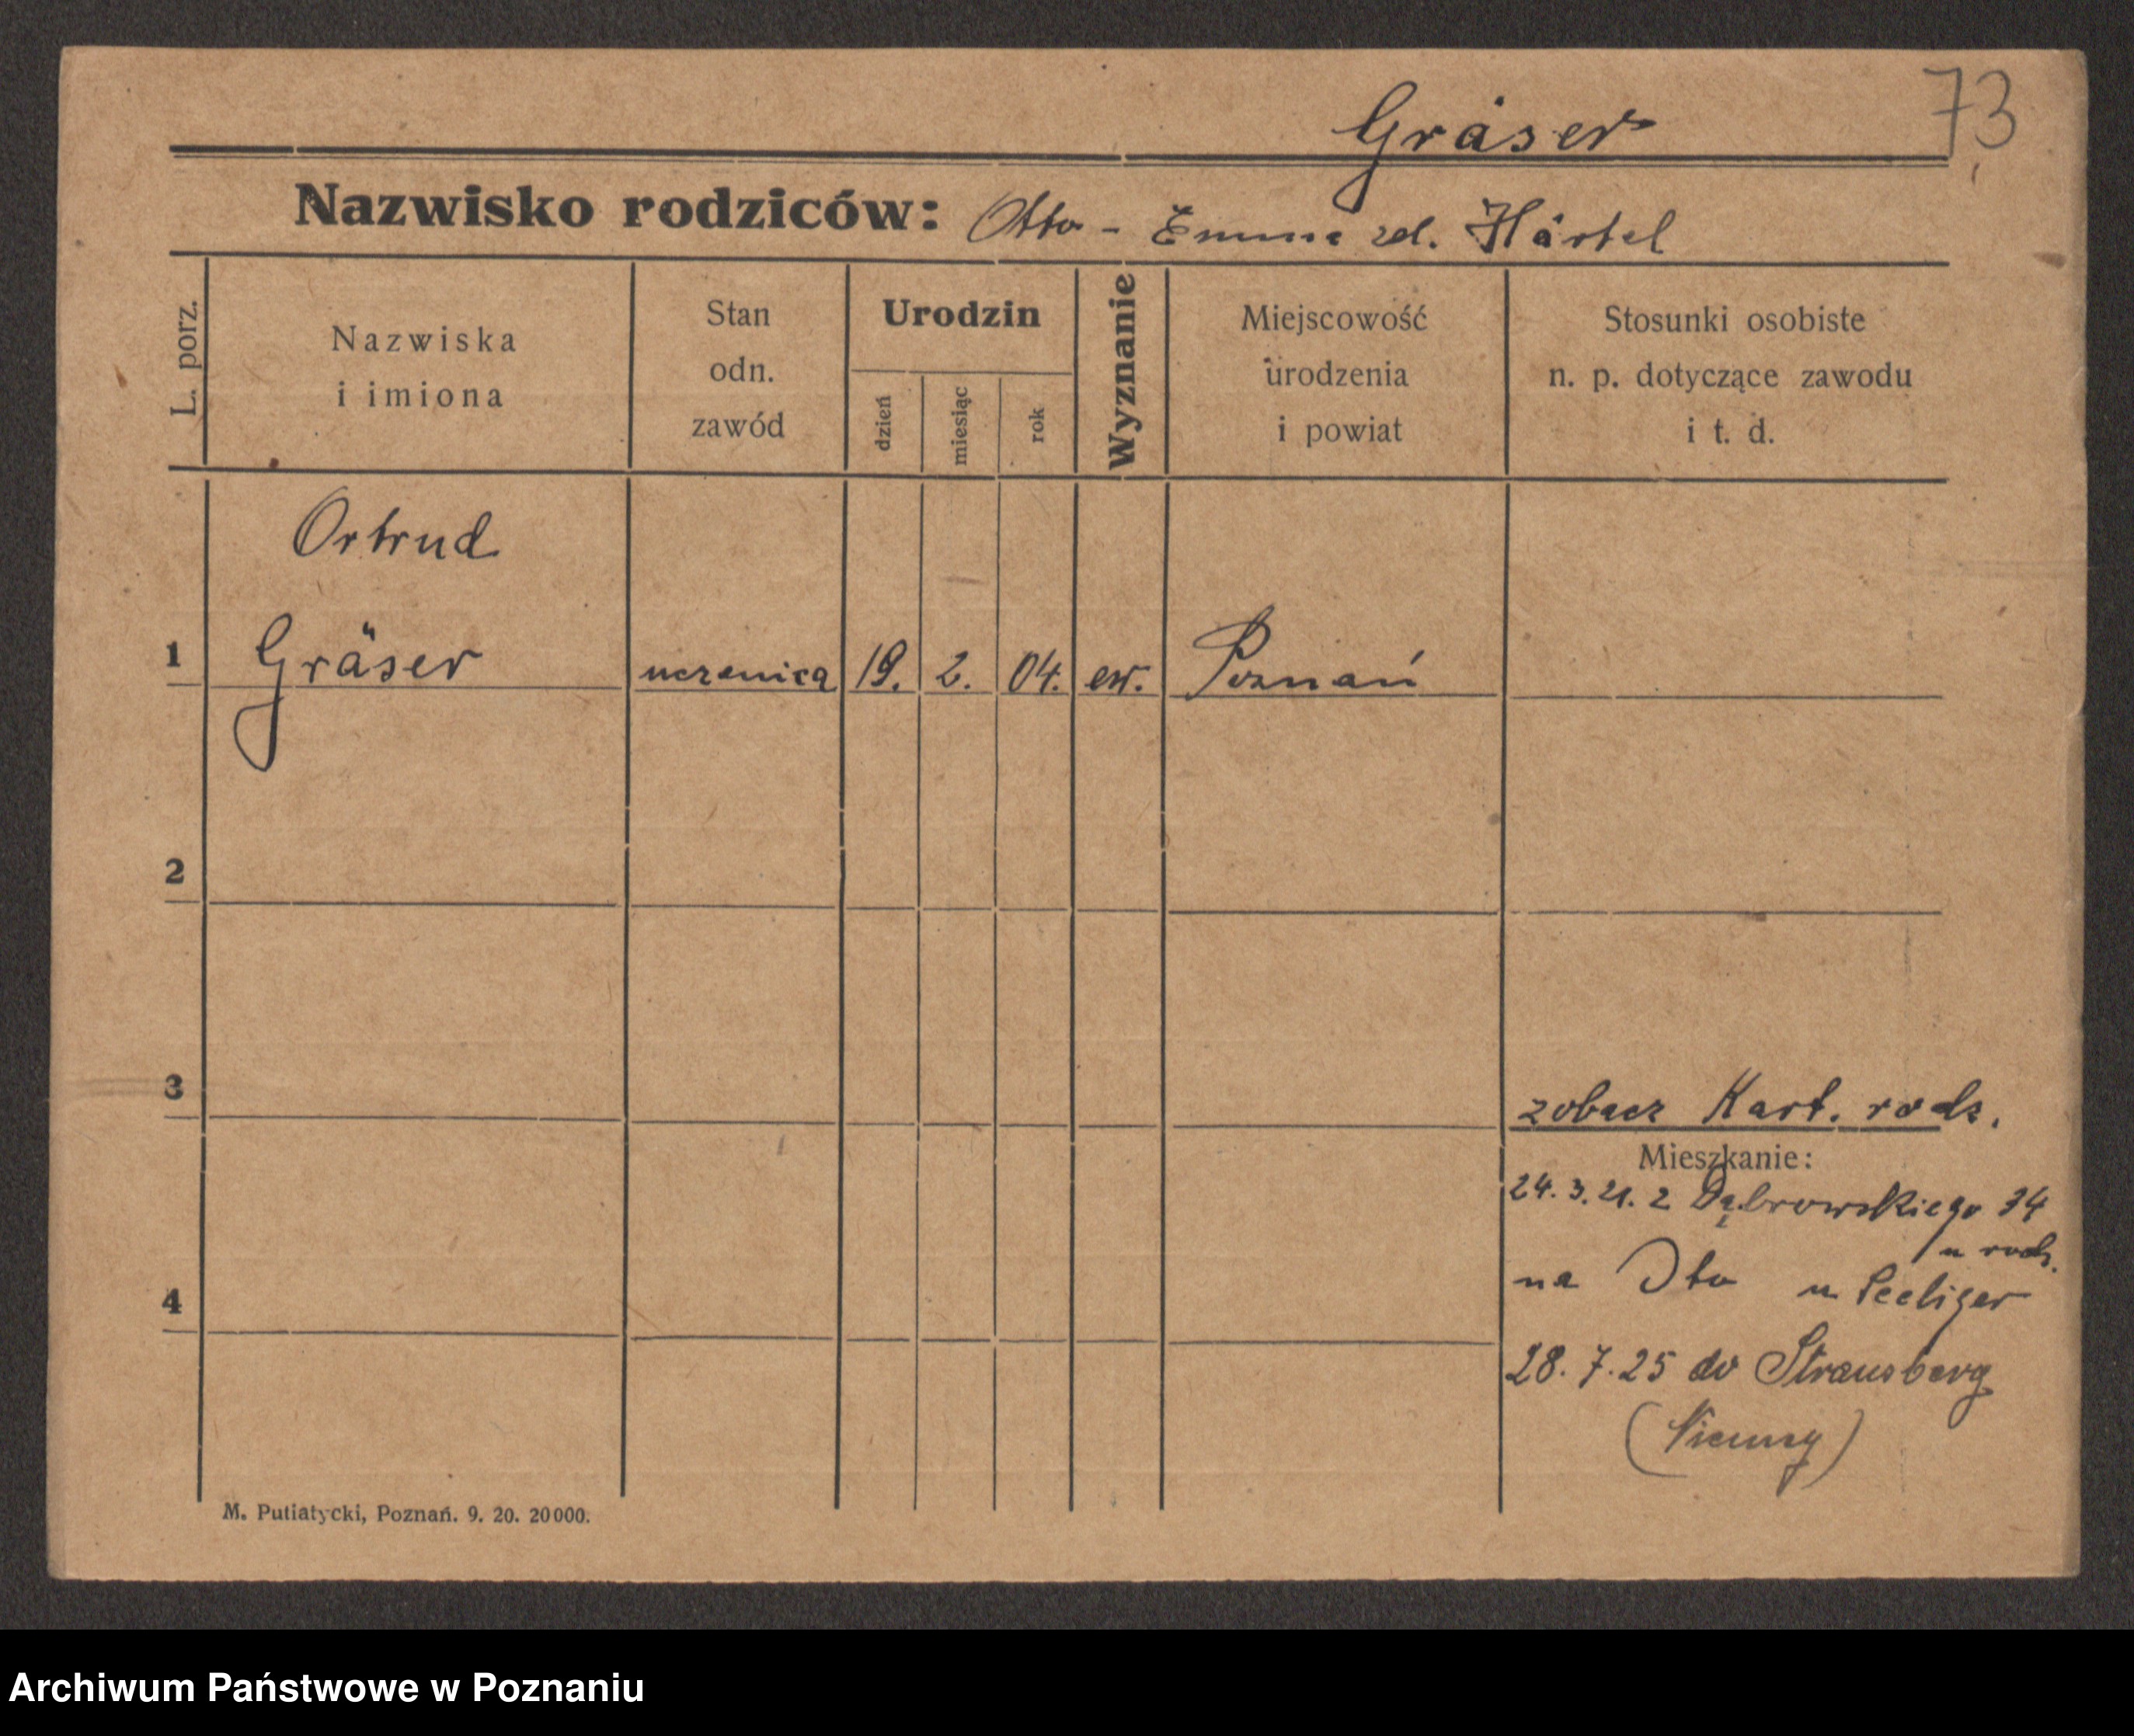 73
Gräser
Nazwisko rodziców: Otto - Emma zd. Härtel
L. porz.
Nazwiska
i imiona
Stan
odn.
zawód
Urodzin
dzień
miesiąc
rok
Wyznanie
Miejscowość
urodzenia
i powiat
Stosunki osobiste
n. p. dotyczące zawodu
i t. d.
Ortrud
1 Gräser uczenica 19. 2. 04. ew. Poznań
2
3
zobacz Kart. rodz.
Mieszkanie:
24. 3. 21. z Dąbrowskiego 34
u rodz.
na Dto u Seeliger
4
28. 7. 25 do Strausberg
(Niemcy)
M. Putiatycki, Poznań. 9. 20. 20000.
Archiwum Państwowe w Poznaniu